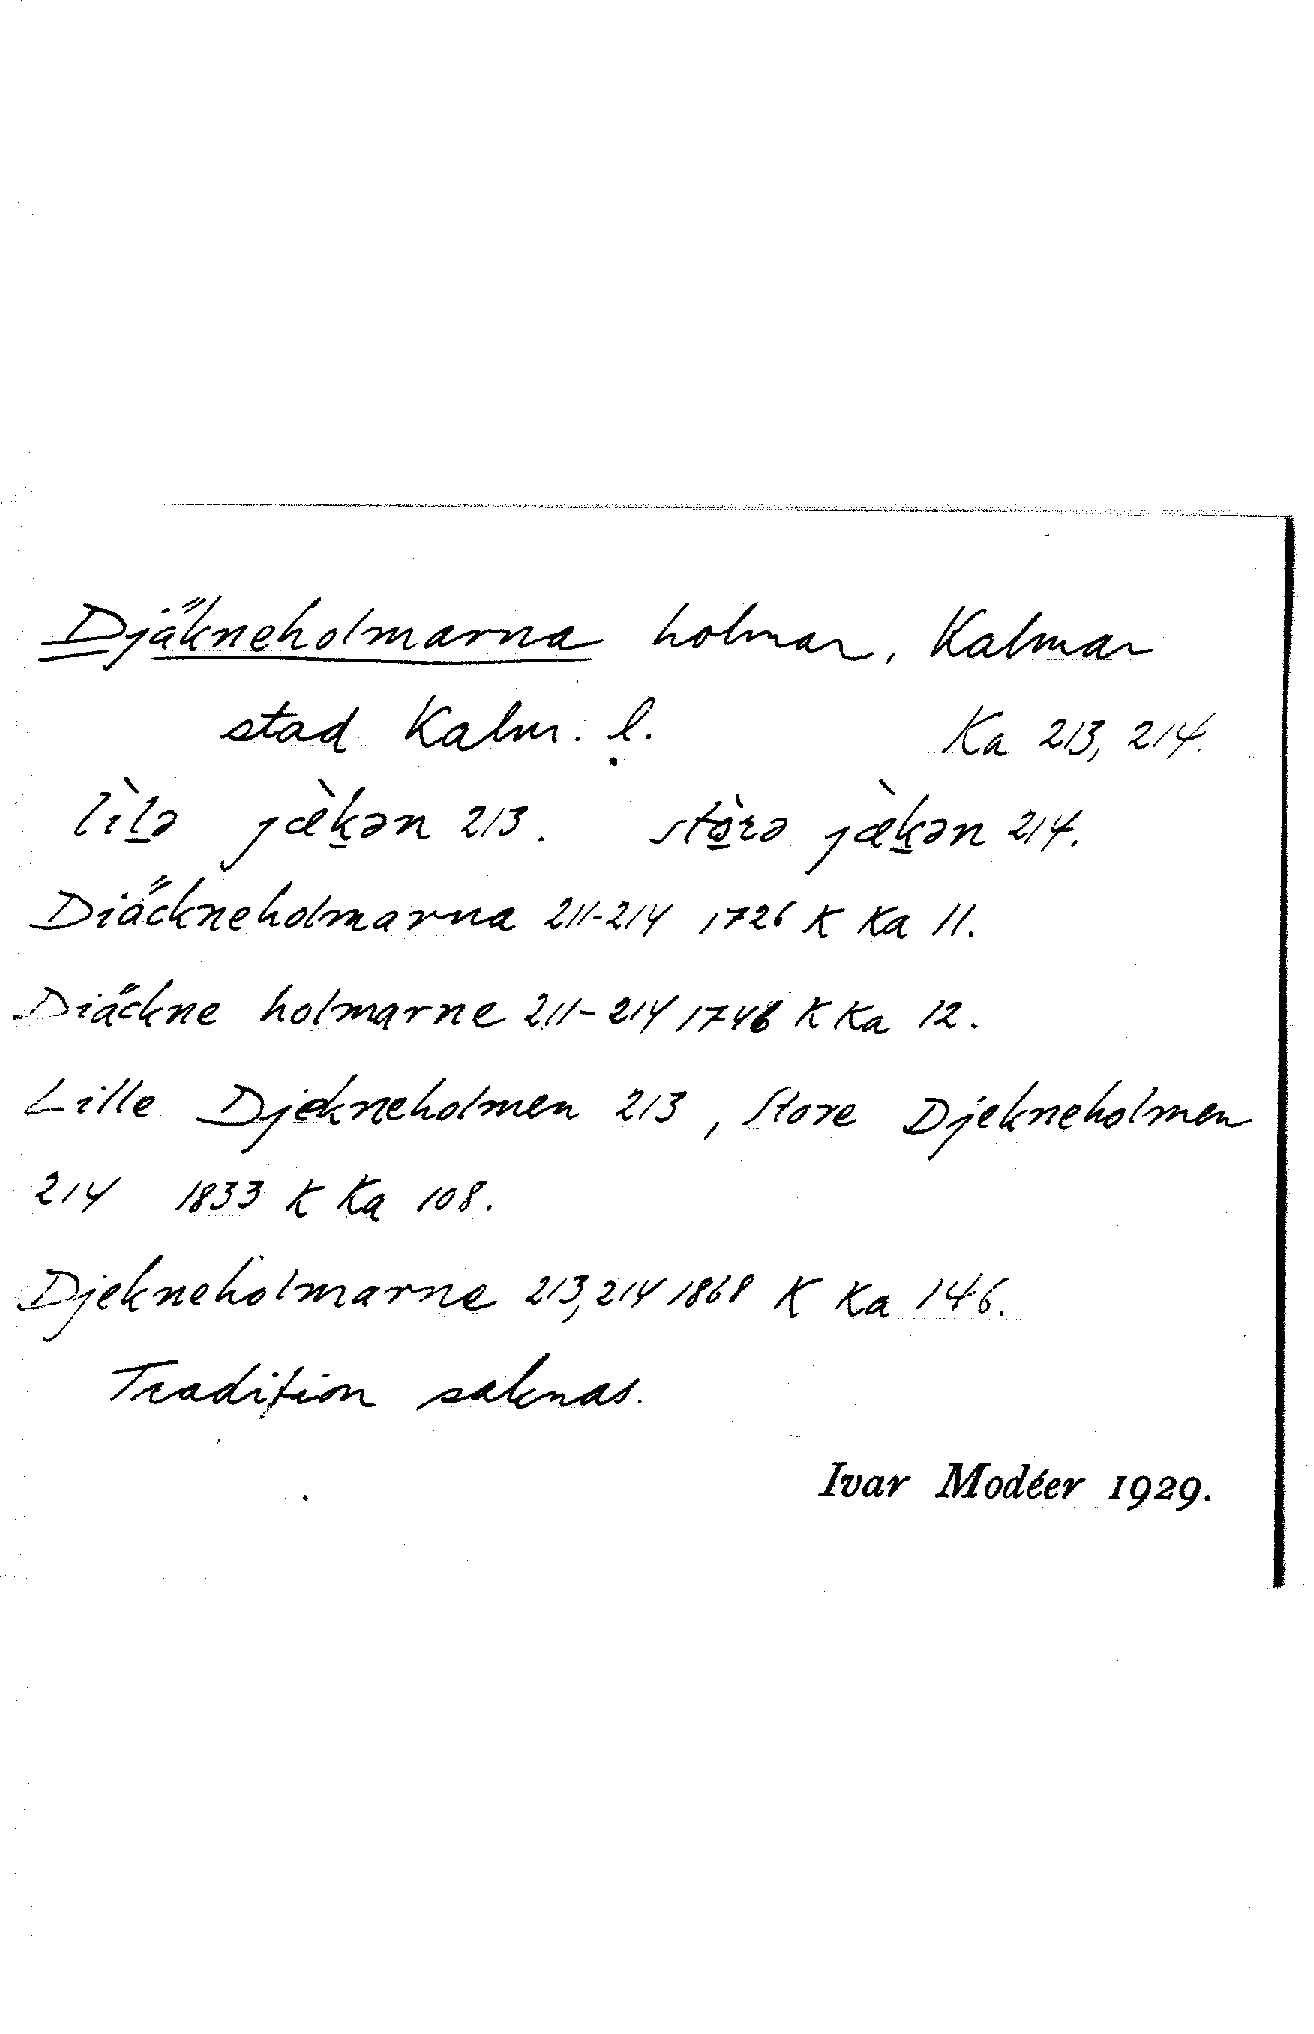 Djäkneholmarna holmar, Kalmar
stad Kalm. l. Ka 213, 214.
lìl̠ə jæ̀k̠ən 213. stò̠rə jæ̀k̠ən 214.
Diäckneholmarna 211-214 1726 K Ka 11.
Diäckne holmarne 211-214 1748 K Ka 12.
Lille Djekneholmen 213, Store Djekneholmen
214 1833 K Ka 108.
Djekneholmarne 213, 214 1868 K Ka 146.
Tradition saknas.
Ivar Modéer 1929.